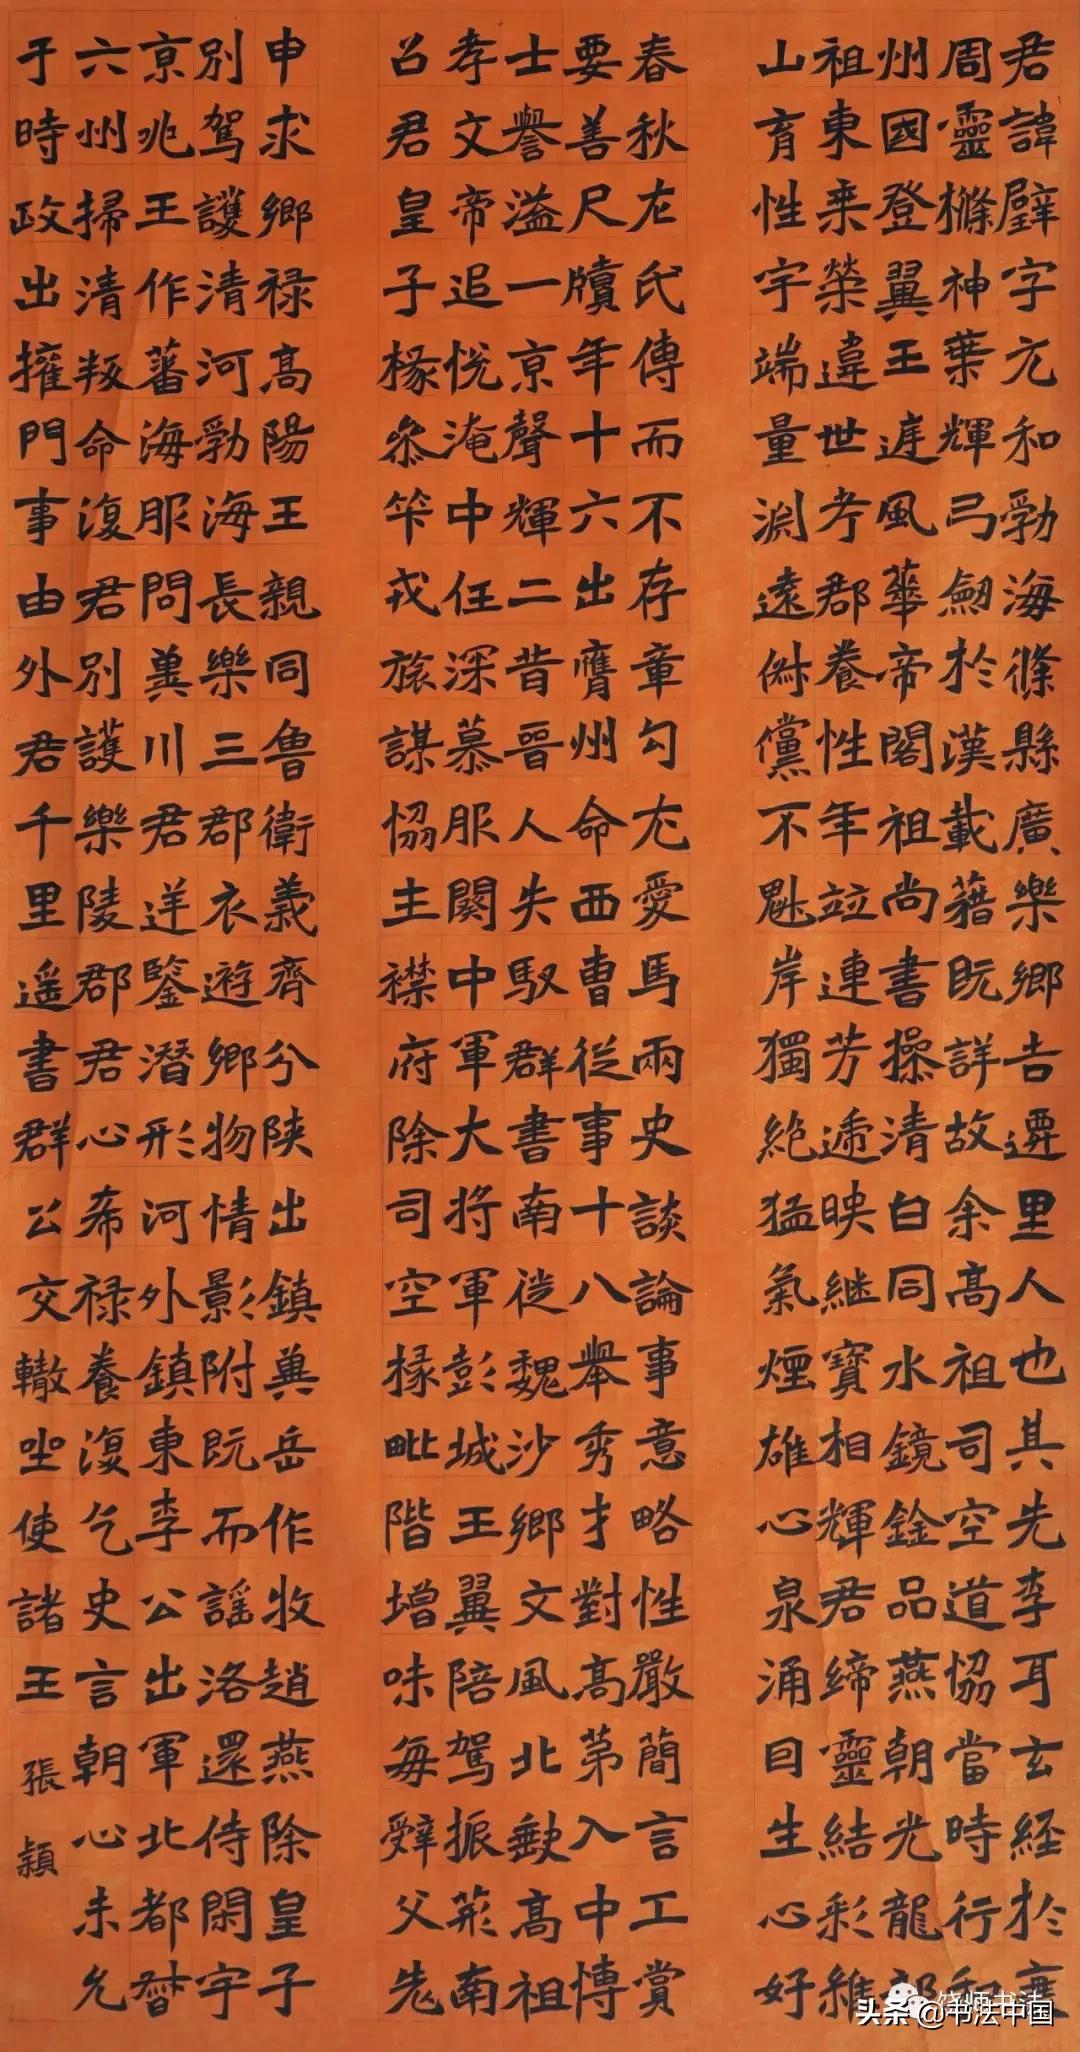 君諱璧字亢和勃海條縣廣樂鄉吉遷里人也其先李耳玄經於
周靈櫛神葉輝弓劔於漢載藉既詳故余高祖司空道協當時行和
州國登翼王遅風華帝閣祖尚書操清白同水鏡鋡品燕朝光龍部
祖東乗榮違世考郡養性年竝連芳遞映継寶相輝君締靈結彩維
山育性宇端量淵遠倜儻不魁岸獨絶猛氣煙雄心泉涌曰生心好
春秋左氏傳而不存章勾尤愛馬兩史談論事意略性嚴簡言工賞
要善尺牘年十六出膺州命西曹從事十八舉秀才對高第入中博
士譽溢一京聲輝二昔晉人失馭群書南徙魏沙鄉文風北缺高祖
孝文帝追悦淹中任深慕服闕中軍大將軍彭城王翼陪駕振斾南
召君皇子掾叅竿戎旅謀恊主襟府除司空掾毗階增味每辭父老
申求鄉禄高陽王親同魯衛義齊分陝出鎮冀岳作牧趙燕除皇子
別駕護清河勃海長樂三郡衣遊鄉物情影附既而謡洛還侍閑宇
京兆王作蕃海服問冀川君逆鑒潛形河外鎮東李公出軍北都督
六州掃清叛命復君別護樂陵郡君心希禄養復乞史言朝心未允
于時政出擁門事由外君千里遥書群公交轍坐使諸王
張穎
饶师书法
头条@书法中国